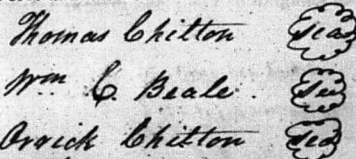 Thomas Chilton Seal
Wm C. Beale. Seal
Orrick Chilton Seal